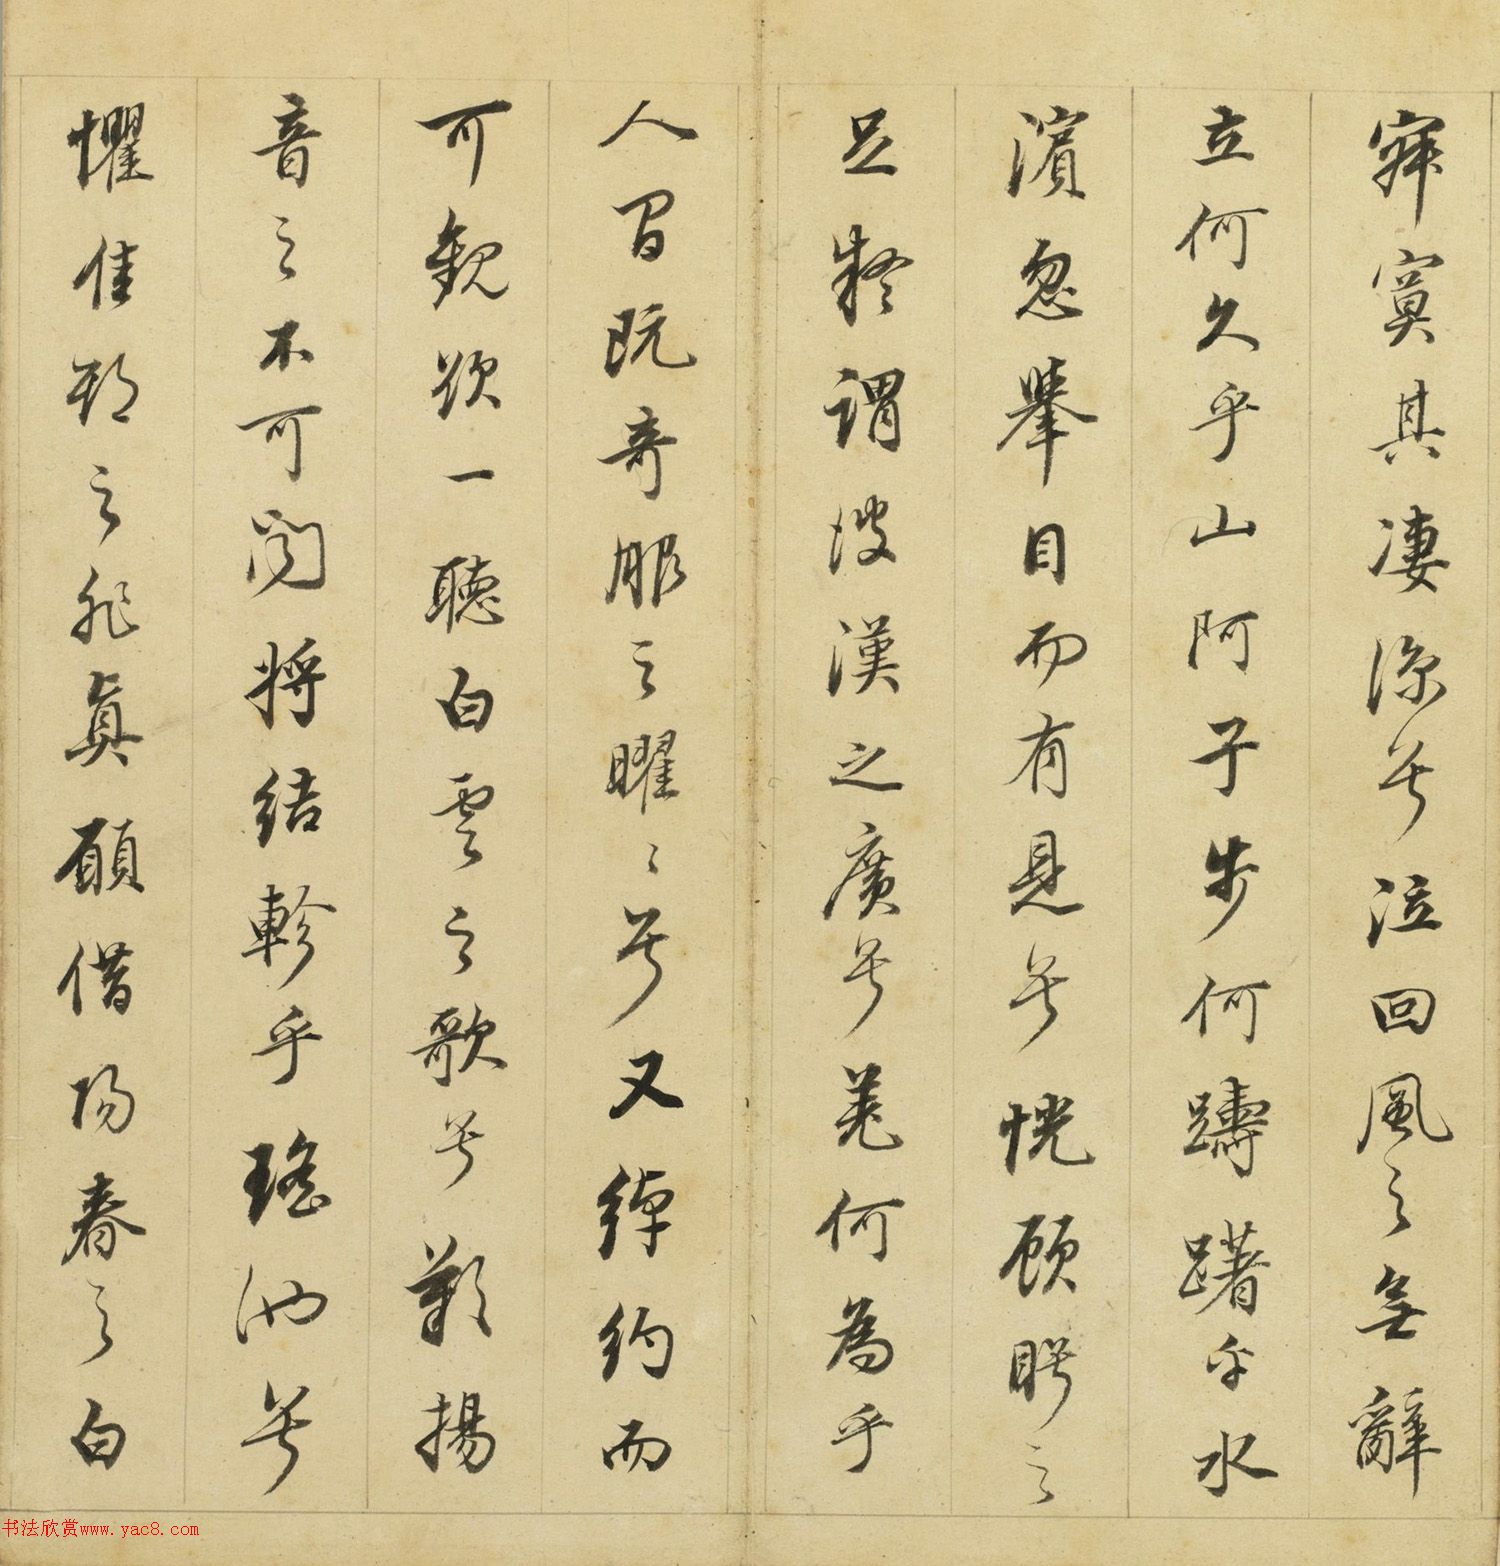 寂寞其凄涼兮泣回風之無辭
立何久乎山阿子步何躊躇乎水
濱忽舉目而有見兮恍顧盼之
足疑謂彼漢之廣兮羌何為乎
人間既奇服之曜〻兮又綽約而
可觀欲一聽白雲之歌兮歎揚
音之不可聞將結軫乎瑤池兮
懼佳期之非真願借陽春之白
书法欣赏www.yac8.com